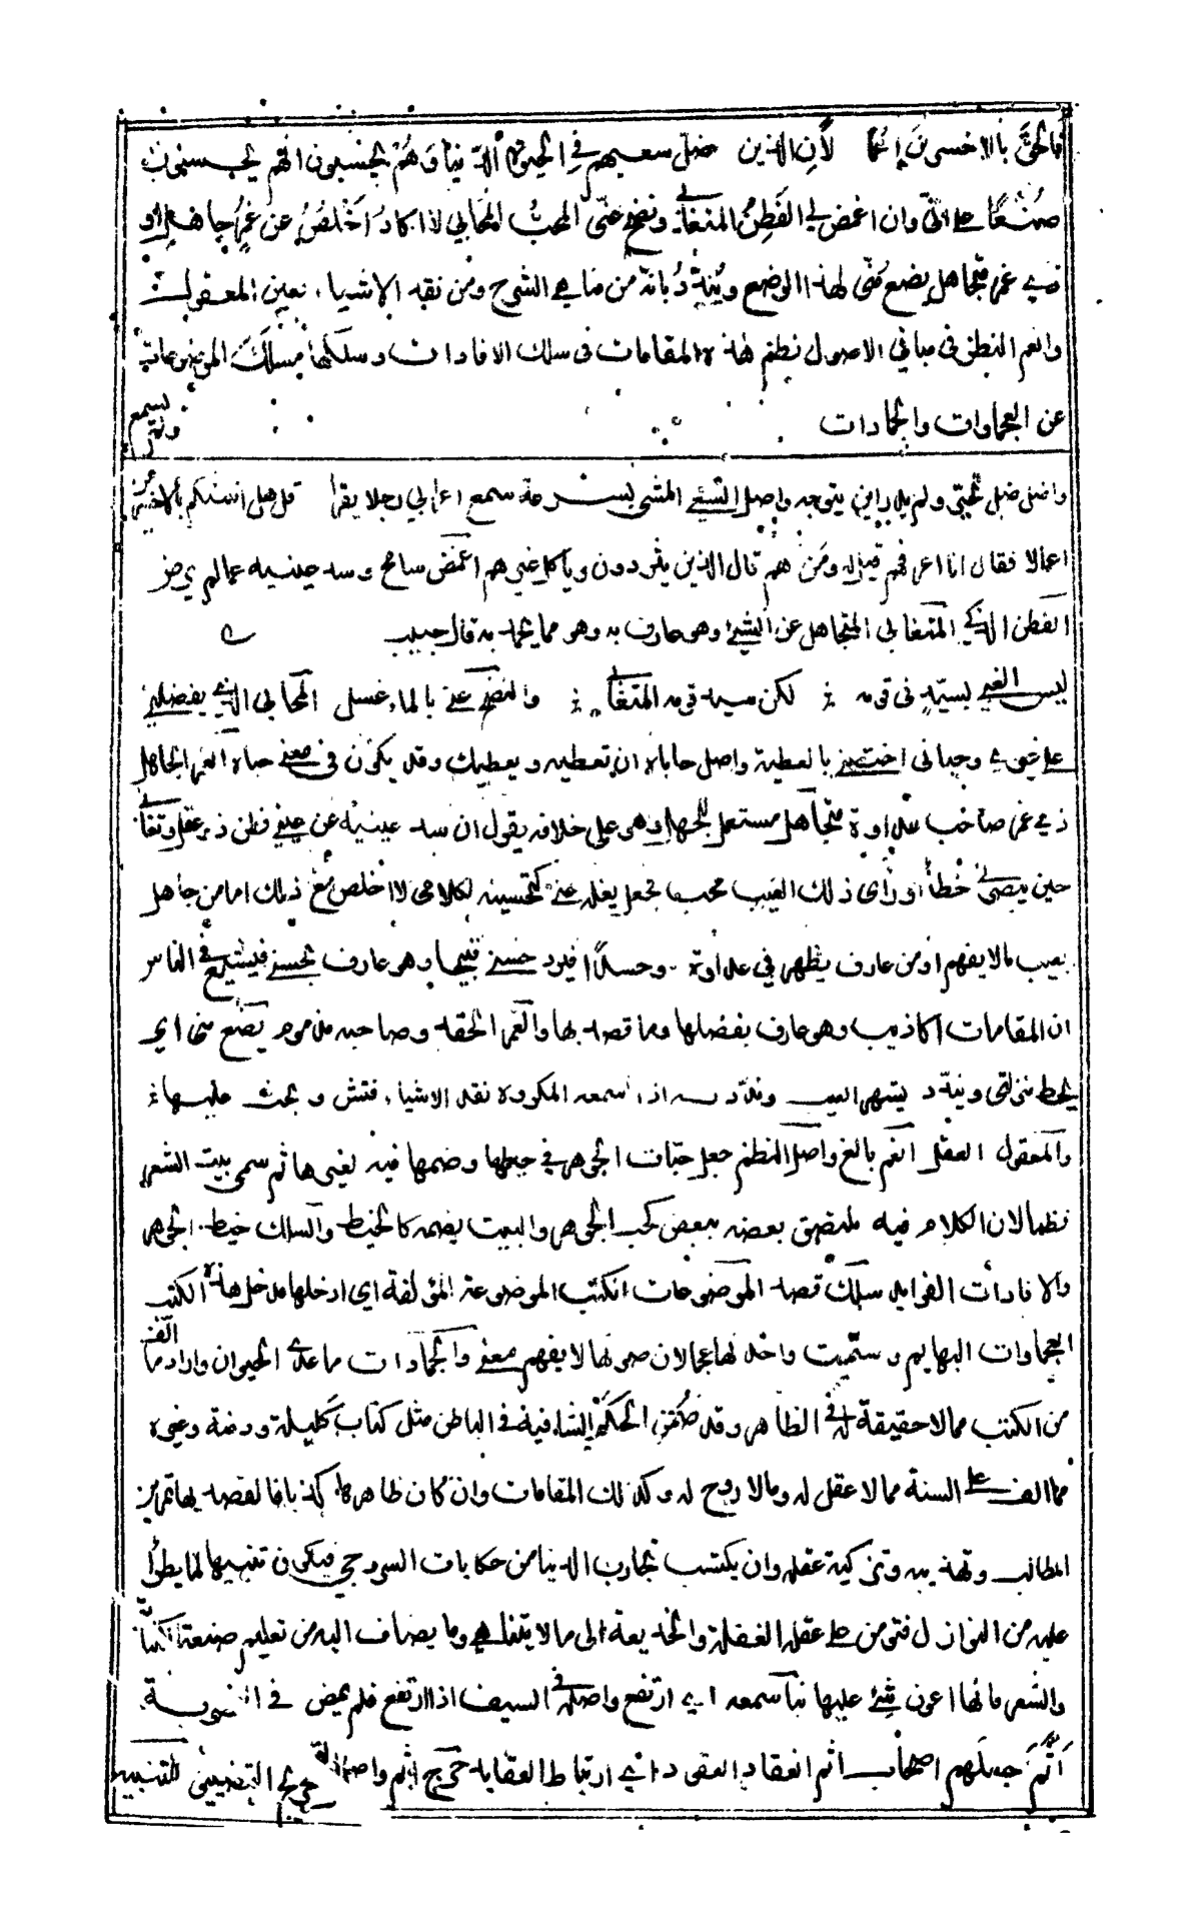 فالحق بالاخسرين اعمالا الذين ضل سعيهم في الحيوة الدنيا وهم يحسبون انهم يحسنون
صنعا على اني وان اغمض لي الفطن المتغابي ونضح عني المحب المحابي لا اكاد اخلص من غمر جاهل او
ذي غمر متجاهل يضع مني لهذا الوضع ويندد بانه من مناهي الشرع ومن نقد الاشياء بعين المعقول
وانعم النظر في مباني الاصول نظم هذه المقامات في سلك الافادات وسلكها مسلك الموضوعات
عن العجماوات والجمادات
ولم يسمع
واضل ضل لحيتي ولم يدر اين يتوجه واصل السعي المشي بسرعة سمع اعرابي رجلا يقرا قل هل انبئكم بالاخسرين
اعمالا فقال انا اعرفهم قيل له ومن هم قال الذين يثردون وياكل غيرهم اغمض سامح وسد عينيه عما لم يرض
الفطن الذكي المتغابي المتجاهل عن الشيئ وهو عارف به وهو مما يحمد به قال حبيب
ليس الغبي بسيد في قومه لكن سيد قومه المتغابي والنضح عني بالماء غسل المحابي الذي يفضلني
على غيري وحباني اختصني بالعطية واصل حاباه ان تعطيه ويعطيك وقد يكون في معنى حباه الغمر الجاهل
ذي غمر صاحب عداوة متجاهل مستعمل للجهل وهو على خلافه يقول ان سد عينيه عن عيبي فطن ذو عقل وتغابى
حين يبصر لي خطأ او راى ذلك العيب محب فجعل يغسله عني كتحسينه لكلامي لا اخلص مع ذلك اما من جاهل
يعيب ما لا يفهم او من عارف يظهر في عداوة وحسدا فيرد حسني قبيحا وهو عارف بحسني فيشيع في الناس
ان المقامات اكاذيب وهو عارف بفضلها وما قصد بها والغمر الحقد وصاحبه مذموم يضع مني اي
يحط منزلتي ويندد يشهر العيب وندد به اذا اسمعه المكروه نقد الاشياء فتش وبحث عليها
والمعقول العقل انعم بالغ واصل النظم جعل حبات الجوهر في حبلها وضمها فيه لغيرها ثم سمي بيت الشعر
نظما لان الكلام فيه ملتصق بعضه ببعض كحب الجوهر والبيت يضمه كالخيط والسلك خيط الجوهر
والافادات الفوايد سلك قصد الموضوعات الكتب الموضوعة المؤلفة اي ادخلها مدخل هذه الكتب
العجماوات البهايم وسميت واحدتها عجما لان صوتها لا يفهم معنى والجمادات ما عدى الحيوان واراد ما الف
من الكتب مما لا حقيقة له في الظاهر وقد ضمن الحكمة الشافية في الباطن مثل كتاب كليلة ودمنة وغيره
مما الف على السنة مما لا عقل له وما لا روح له وكذلك المقامات وان كان ظاهرها كذبا فالقصد بها تمرين
الطالب وتهذيبه وتزكية عقله وان يكتسب تجارب الدنيا من حكايات السروجي فيكون تنبيها لما يطرأ
عليه من النوازل فتومن على عقله الغفلة والخديعة الى ما لا يتغلى وما يضاف اليه من تعليم صنعة الكتابة
والشعر فانها اعون شئ عليها نبا سمعه اي ارتفع واصله في السيف اذا ارتفع فلم يمض في الضريبة
اثم جعلهم اصحاب اثم انعقاد العقود اي ارتباط العقايد حرج اثم واصله الضيق